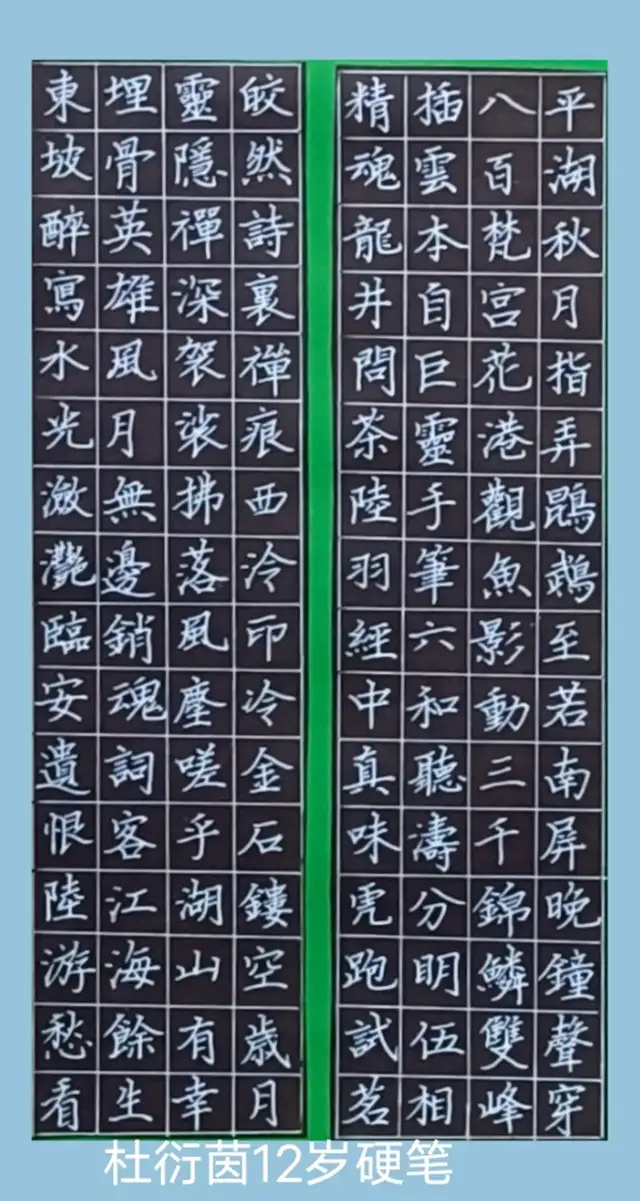 平湖秋月指弄鵾鵝至若南屏晚鐘聲穿
八百梵宮花港觀魚影動三千錦鱗雙峰
插雲本自巨靈手筆六和聽濤分明伍相
精魂龍井問茶陸羽經中真味虎跑試茗
皎然詩裏禪痕西泠印冷金石鏤空歲月
靈隱禪深袈裟拂落風塵嗟乎湖山有幸
埋骨英雄風月無邊銷魂詞客江海餘生
東坡醉寫水光瀲灧臨安遺恨陸游愁看
杜衍茵12岁硬笔